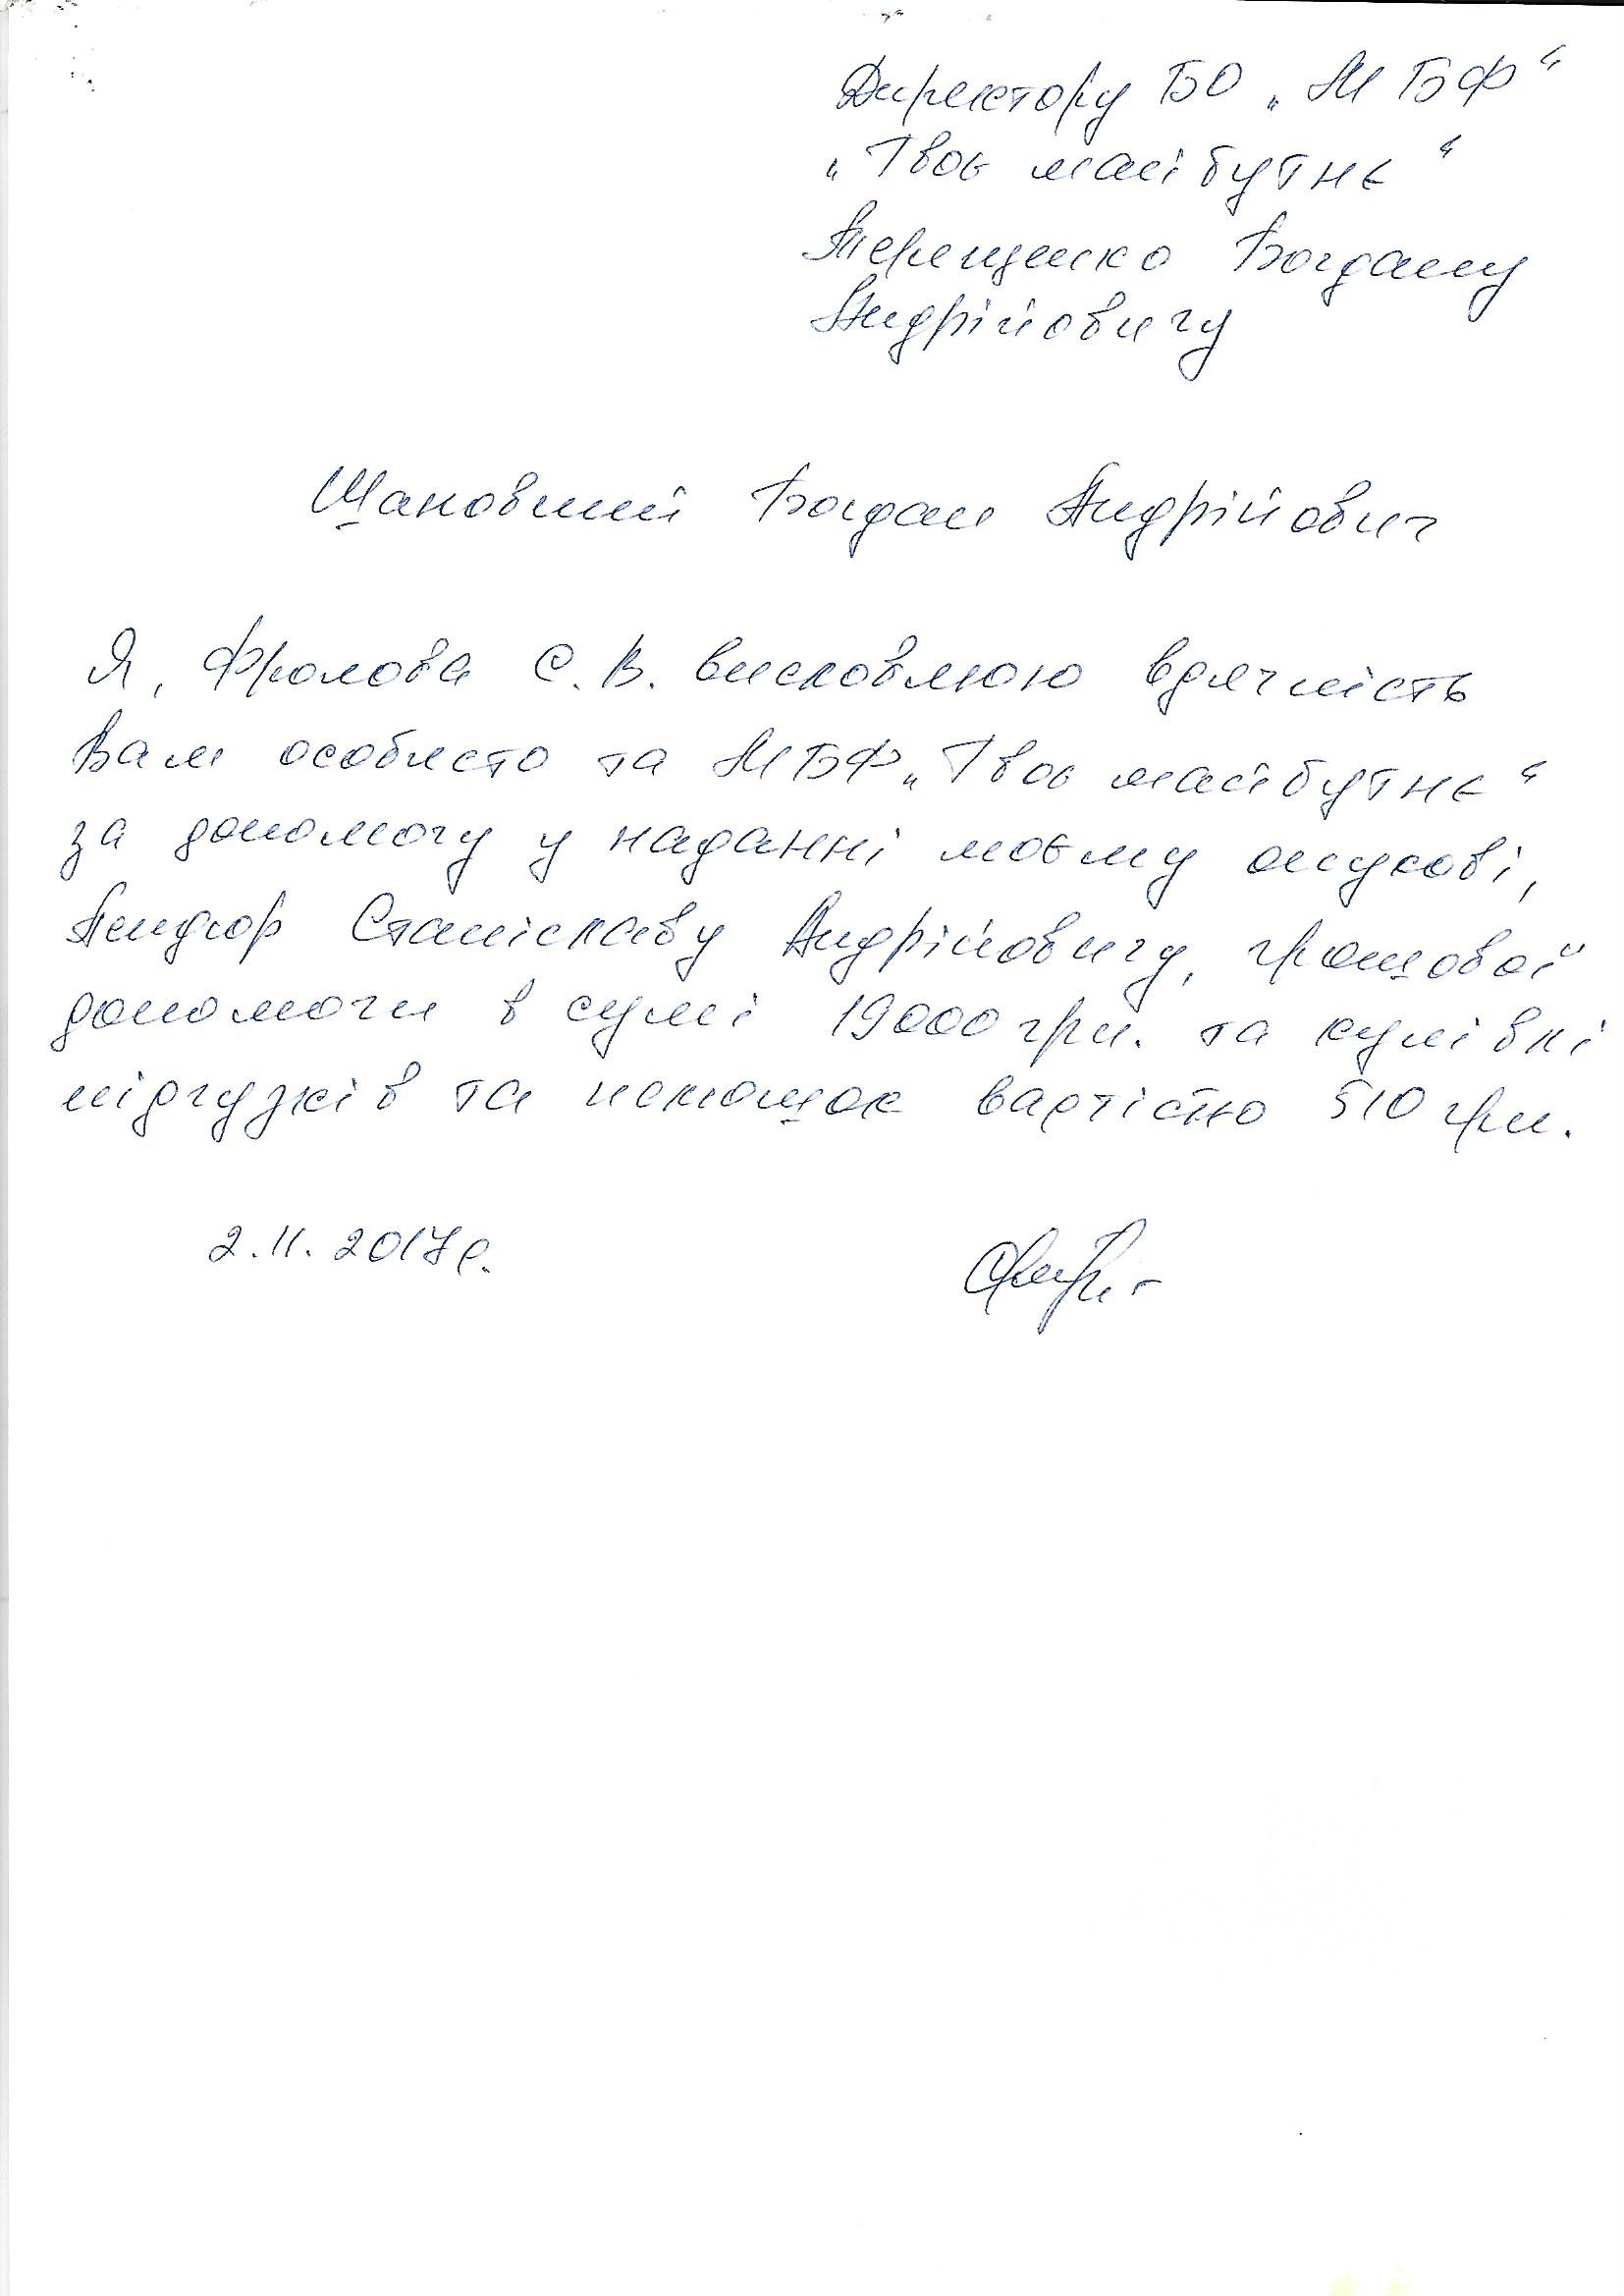 Директору БО „МБФ“
„Твоє майбутнє“
Терещенко Богдану
Андрійовичу
Шановний Богдан Андрійович
Я, Фролова С.В. висловлюю вдячність
Вам особисто та МБФ „Твоє майбутнє“
за допомогу у наданні моєму онукові,
Станіславу Андрійовичу, грошової
допомоги в сумі 19000 грн. та купівлі
підгузків та пелюшок вартістю 510 грн.
2.11.2017р.